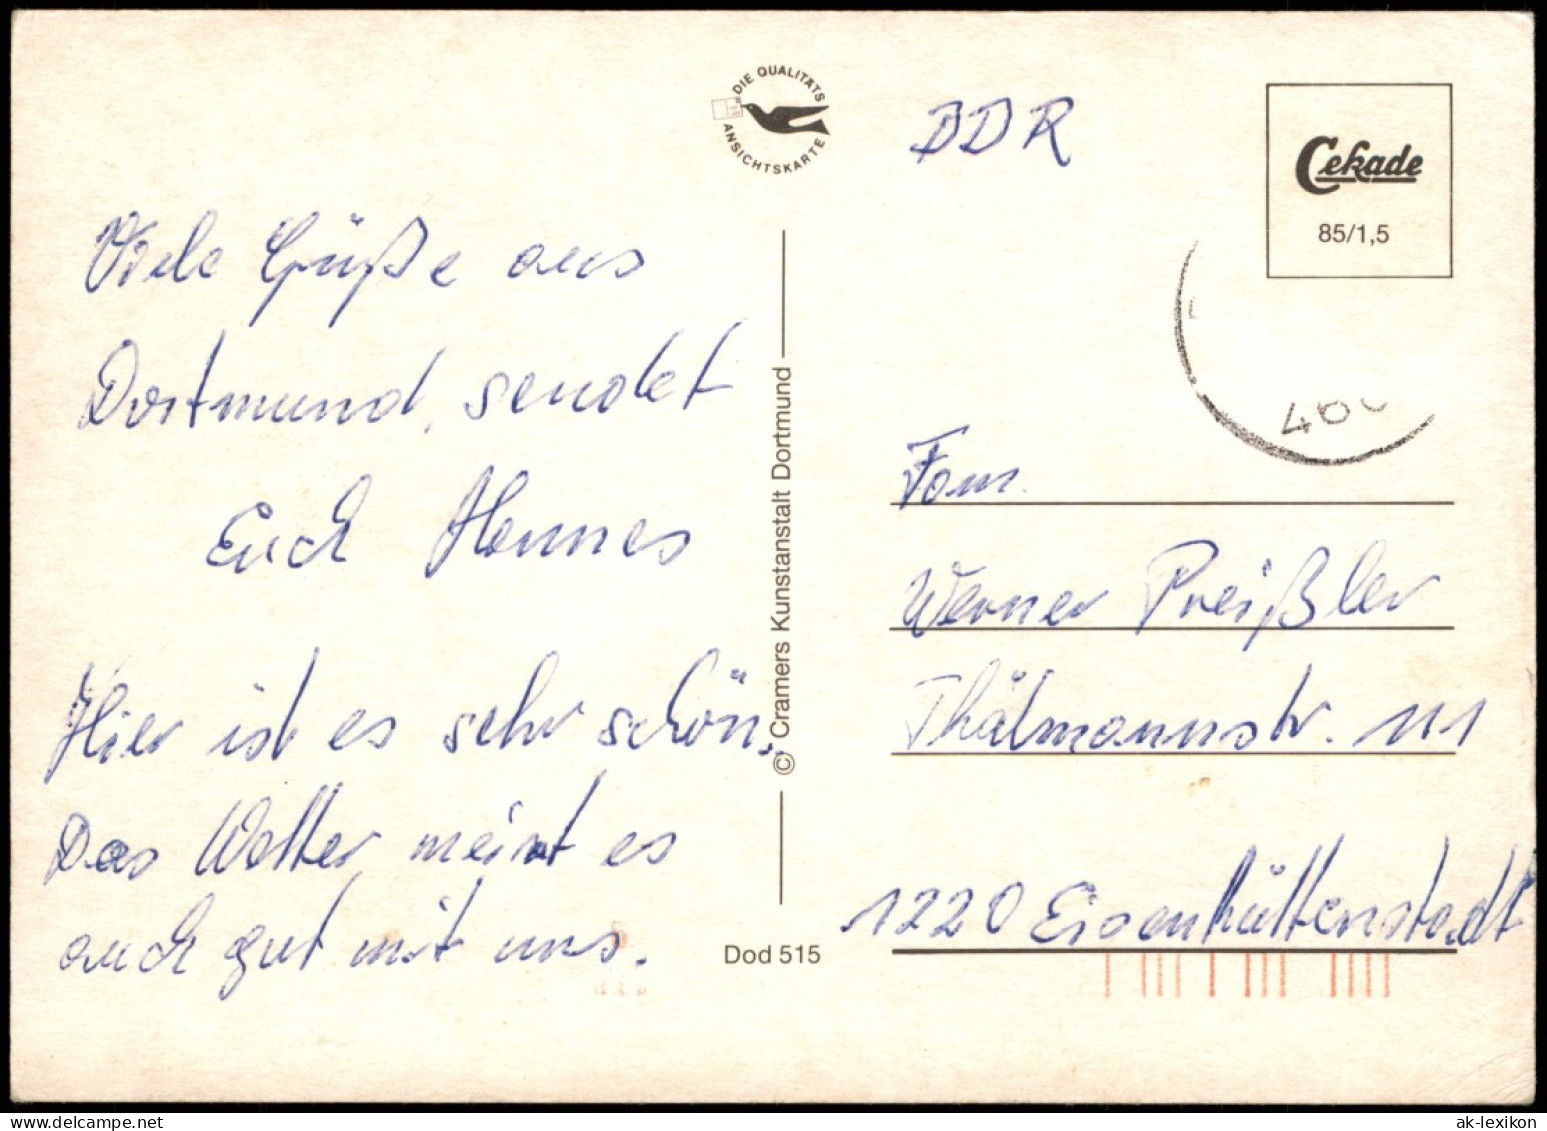 DIE QUALITÄTS
ANSICHTSKARTE
DDR
Cekade
85/1,5
Viele Grüße aus
Dortmund, sendet
Euch Hannes
Hier ist es sehr schön.
Das Wetter meint es
auch gut mit uns.
© Cramers Kunstanstalt Dortmund
Dod 515
460
Fam.
Werner Preißler
Thälmannstr. 111
1220 Eisenhüttenstadt
delcampe.net
ak-lexikon